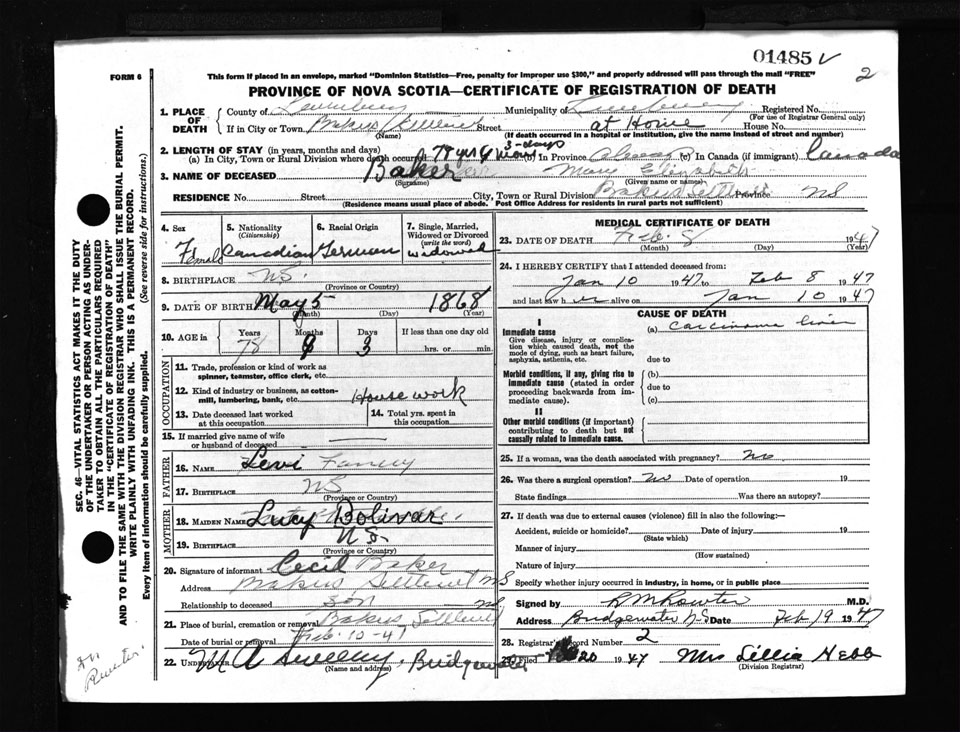 01485 V
2
FORM 6
This form if placed in an envelope, marked "Dominion Statistics—Free, penalty for improper use $300," and properly addressed will pass through the mail "FREE"
PROVINCE OF NOVA SCOTIA—CERTIFICATE OF REGISTRATION OF DEATH
1. PLACE OF DEATH
County of Lunenburg Municipality of Lunenburg Registered No.
(For use of Registrar General only)
If in City or Town Street at Home House No.
(Name) (If death occurred in a hospital or institution, give the name instead of street and number)
2. LENGTH OF STAY (in years, months and days)
3-days
(a) In City, Town or Rural Division where death occurred 78 yrs (b) In Province (c) In Canada (if immigrant) Canada
3. NAME OF DECEASED Baker Mary Elizabeth
(Surname) (Given name or names)
RESIDENCE No. Street City, Town or Rural Division Province NS
(Residence means usual place of abode. Post Office Address for residents in rural parts not sufficient)
4. Sex
Female
5. Nationality
(Citizenship)
Canadian
6. Racial Origin
German
7. Single, Married, Widowed or Divorced
(write the word)
Widowed
8. BIRTHPLACE NS.
(Province or Country)
9. DATE OF BIRTH May 5 1868
(Month) (Day) (Year)
10. AGE in
Years Months Days If less than one day old
78 9 3 hrs. or min.
OCCUPATION
11. Trade, profession or kind of work as spinner, teamster, office clerk, etc.
12. Kind of industry or business, as cotton-mill, lumbering, bank, etc. House work
13. Date deceased last worked at this occupation
14. Total yrs. spent in this occupation
15. If married give name of wife or husband of deceased
FATHER
16. NAME Levi
17. BIRTHPLACE NS
(Province or Country)
MOTHER
18. MAIDEN NAME Lucy Bolivar
19. BIRTHPLACE NS
(Province or Country)
20. Signature of informant Cecil Baker
Address NS
Relationship to deceased son
21. Place of burial, cremation or removal NS
Date of burial or removal Feb-10-47
22. UNDERTAKER Bridgewater
(Name and address)
MEDICAL CERTIFICATE OF DEATH
23. DATE OF DEATH Feb. 8 1947
(Month) (Day) (Year)
24. I HEREBY CERTIFY that I attended deceased from:
Jan 10 1947 to Feb 8 1947
and last saw her alive on Jan 10 1947
CAUSE OF DEATH
I
Immediate cause
Give disease, injury or complication which caused death, not the mode of dying, such as heart failure, asphyxia, asthenia, etc.
(a) Carcinoma liver
due to
Morbid conditions, if any, giving rise to immediate cause (stated in order proceeding backwards from immediate cause).
(b)
due to
(c)
II
Other morbid conditions (if important) contributing to death but not causally related to immediate cause.
25. If a woman, was the death associated with pregnancy? No
26. Was there a surgical operation? No Date of operation 19
State findings Was there an autopsy?
27. If death was due to external causes (violence) fill in also the following:—
Accident, suicide or homicide? Date of injury 19
(State which)
Manner of injury
(How sustained)
Nature of injury
Specify whether injury occurred in industry, in home, or in public place
Signed by M.D.
Address Bridgewater N.S. Date Feb 19 1947
28. Registrar's Record Number 2
29. Filed 20 1947 Mrs Lillia Hebb
(Division Registrar)
SEC. 46—VITAL STATISTICS ACT MAKES IT THE DUTY
OF THE UNDERTAKER OR PERSON ACTING AS UNDER-
TAKER TO OBTAIN ALL THE PARTICULARS REQUIRED
IN THE "CERTIFICATE OF REGISTRATION OF DEATH"
AND TO FILE THE SAME WITH THE DIVISION REGISTRAR WHO SHALL ISSUE THE BURIAL PERMIT.
WRITE PLAINLY WITH UNFADING INK. THIS IS A PERMANENT RECORD.
Every item of information should be carefully supplied. (See reverse side for instructions.)